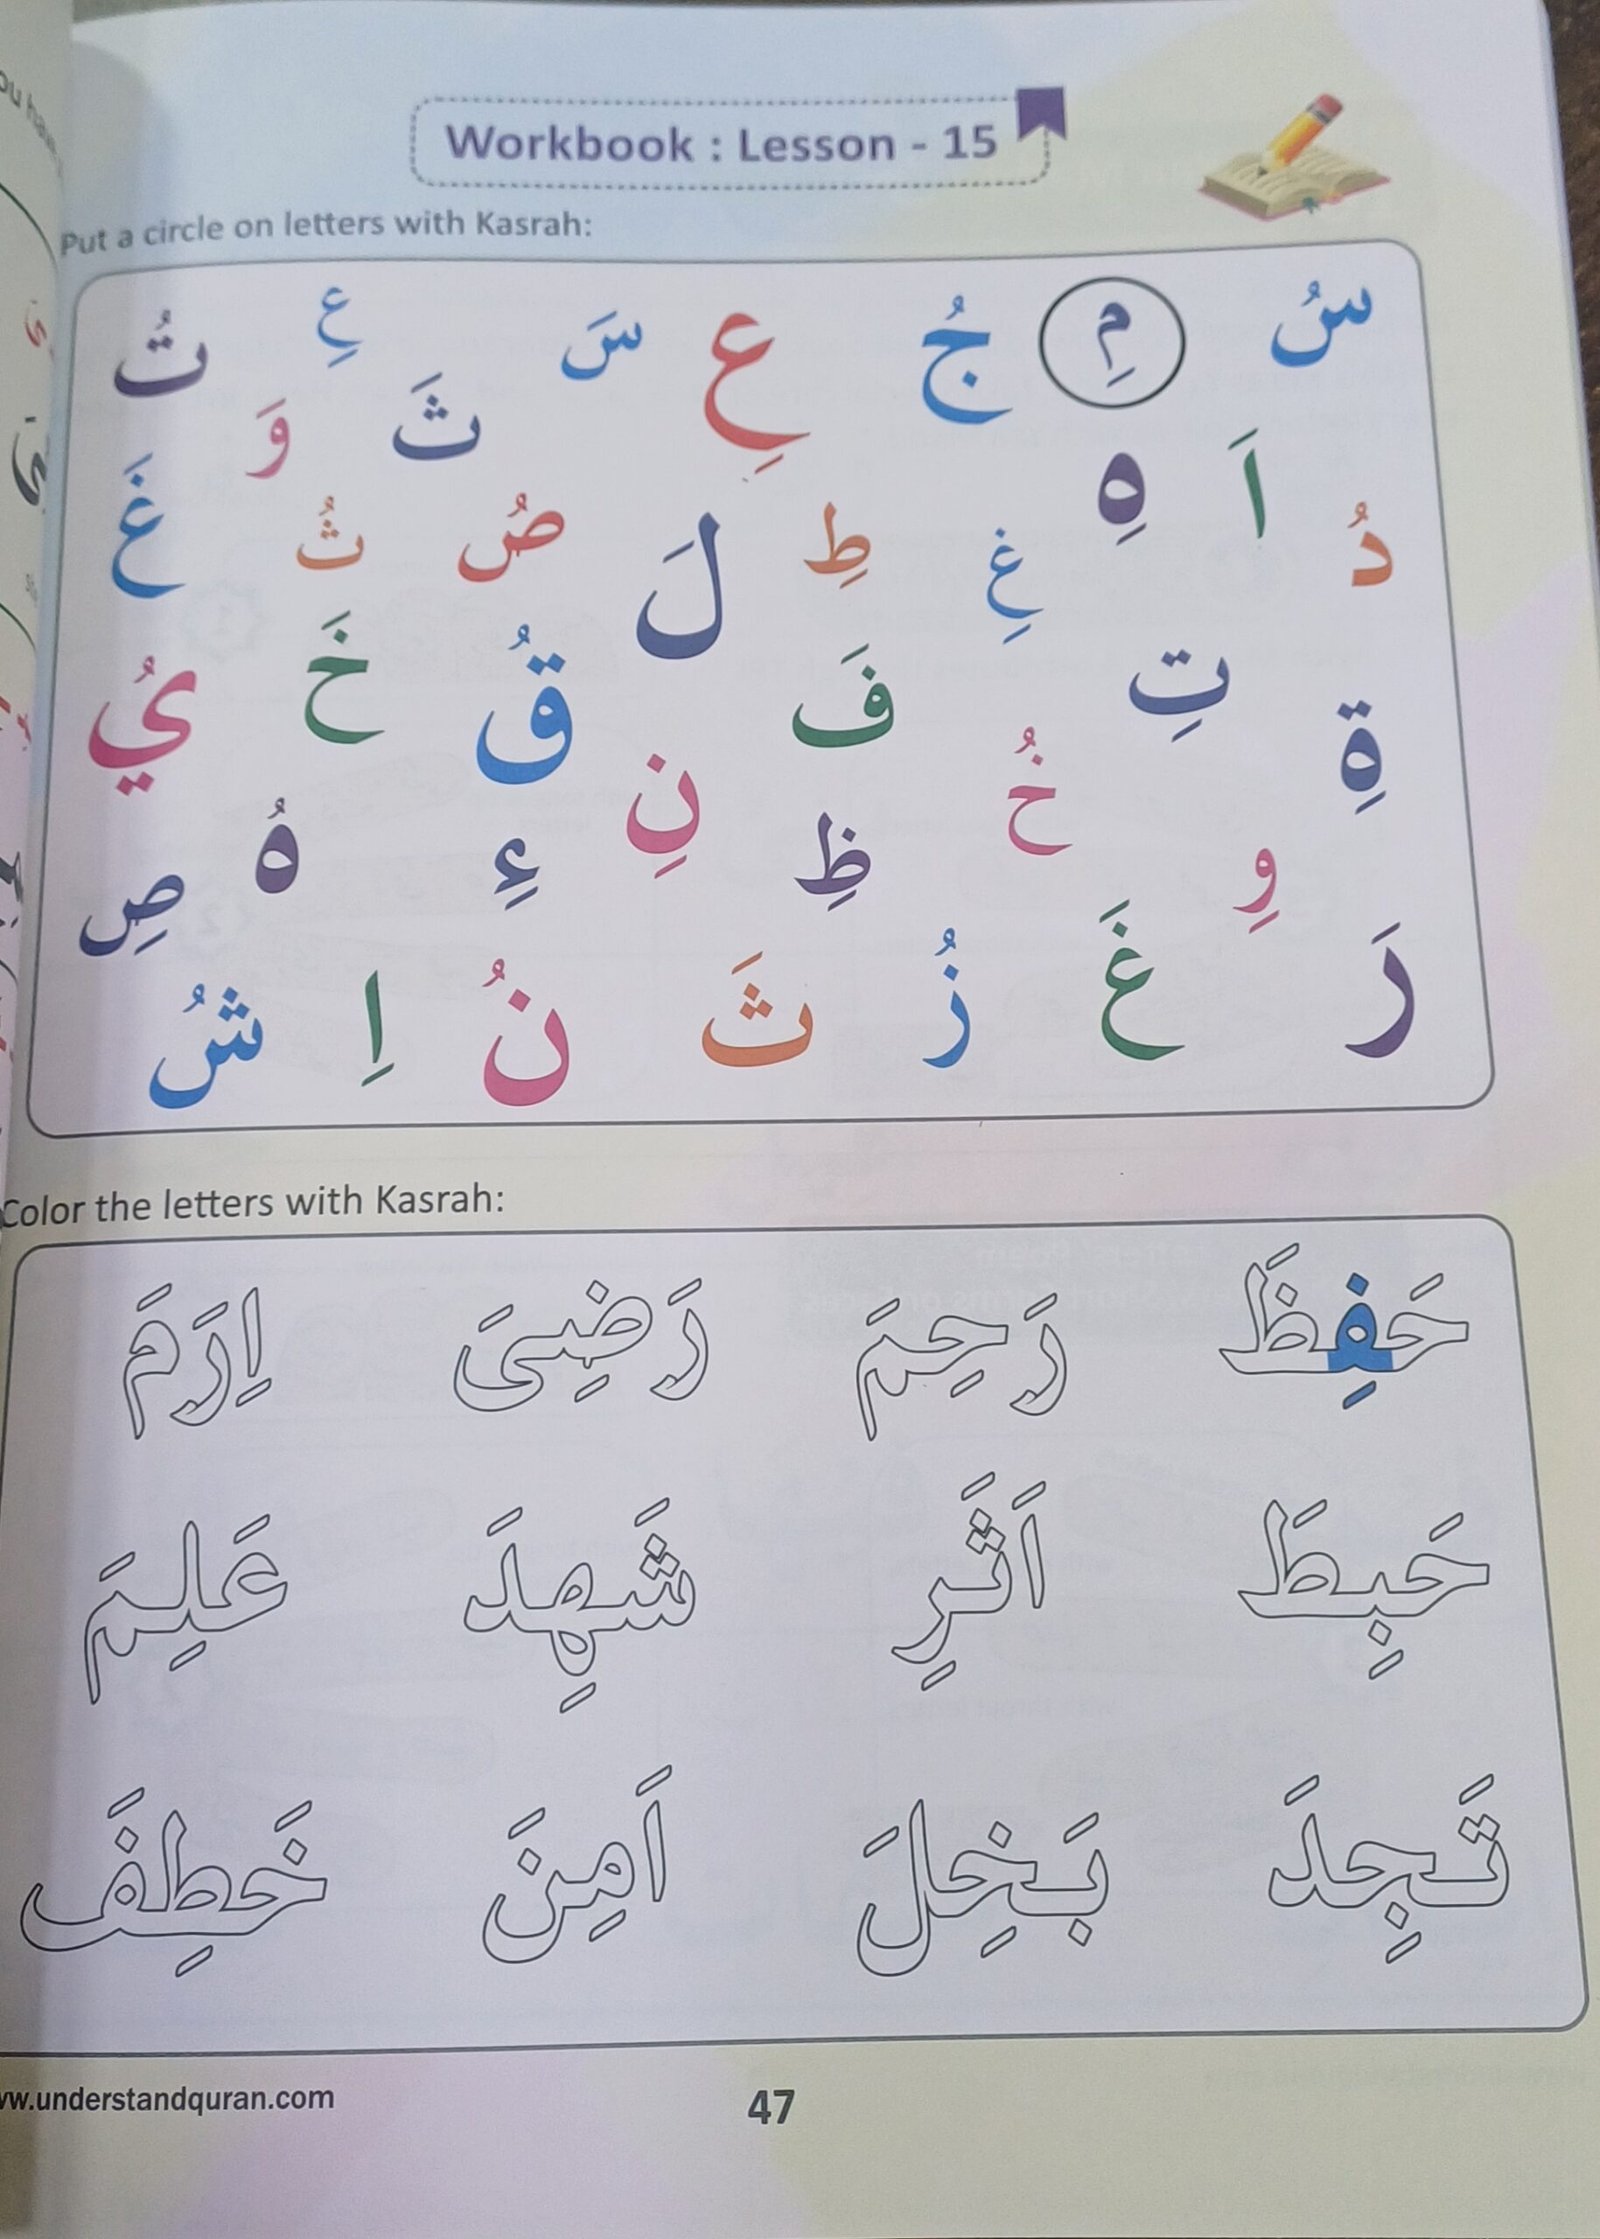 Workbook : Lesson - 15
Put a circle on letters with Kasrah:
سُ مِ جُ عِ سَ عِ تُ
اَ هِ ثَ وَ
دُ غِ طِ لَ صُ ثُ غَ
ةِ تِ فَ قُ خَ يُ
وِ خُ ظِ نِ ءِ هُ صِ
رَ غَ زُ ثَ نُ اِ شُ
Color the letters with Kasrah:
حَفِظَ رَحِمَ رَضِىَ اِرَمَ
حَبِطَ اَثَرِ شَهِدَ عَلِمَ
تَجِدَ بَخِلَ اَمِنَ خَطِفَ
w.understandquran.com
47